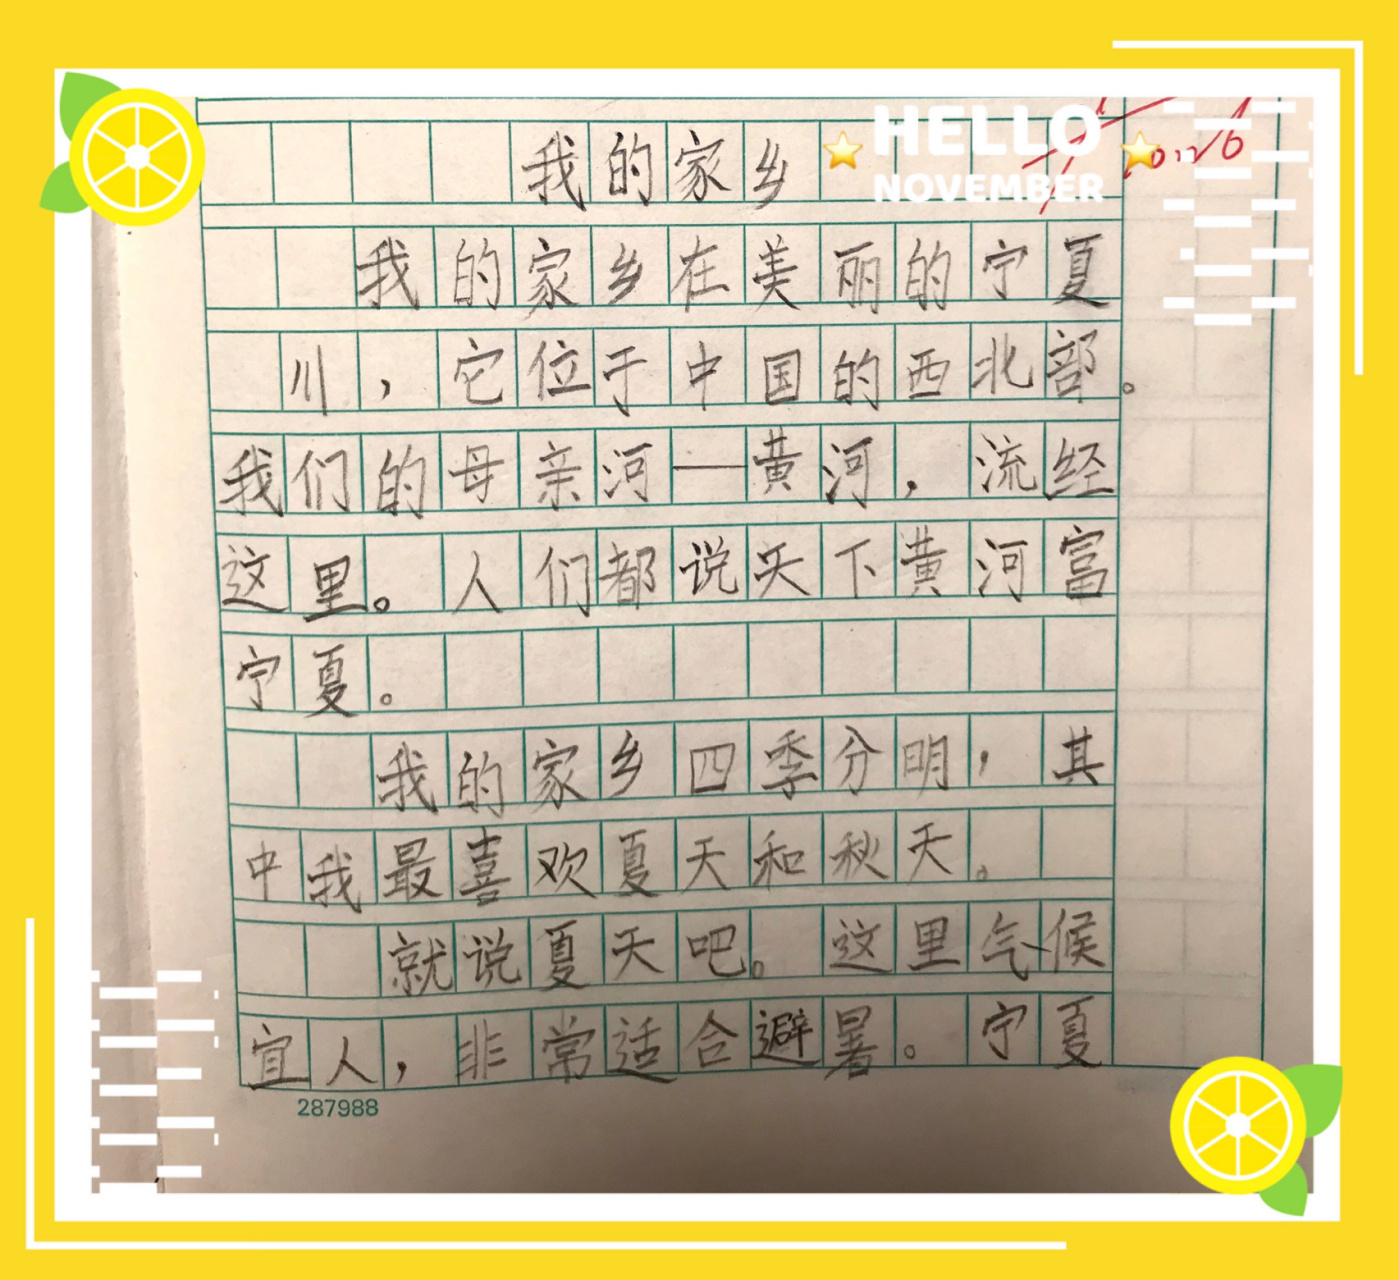 HELLO
NOVEMBER
我的家乡
我的家乡在美丽的宁夏
川，它位于中国的西北部。
我们的母亲河—黄河，流经
这里。人们都说天下黄河富
宁夏。
我的家乡四季分明，其
中我最喜欢夏天和秋天。
就说夏天吧。这里气候
宜人，非常适合避暑。宁夏
287988